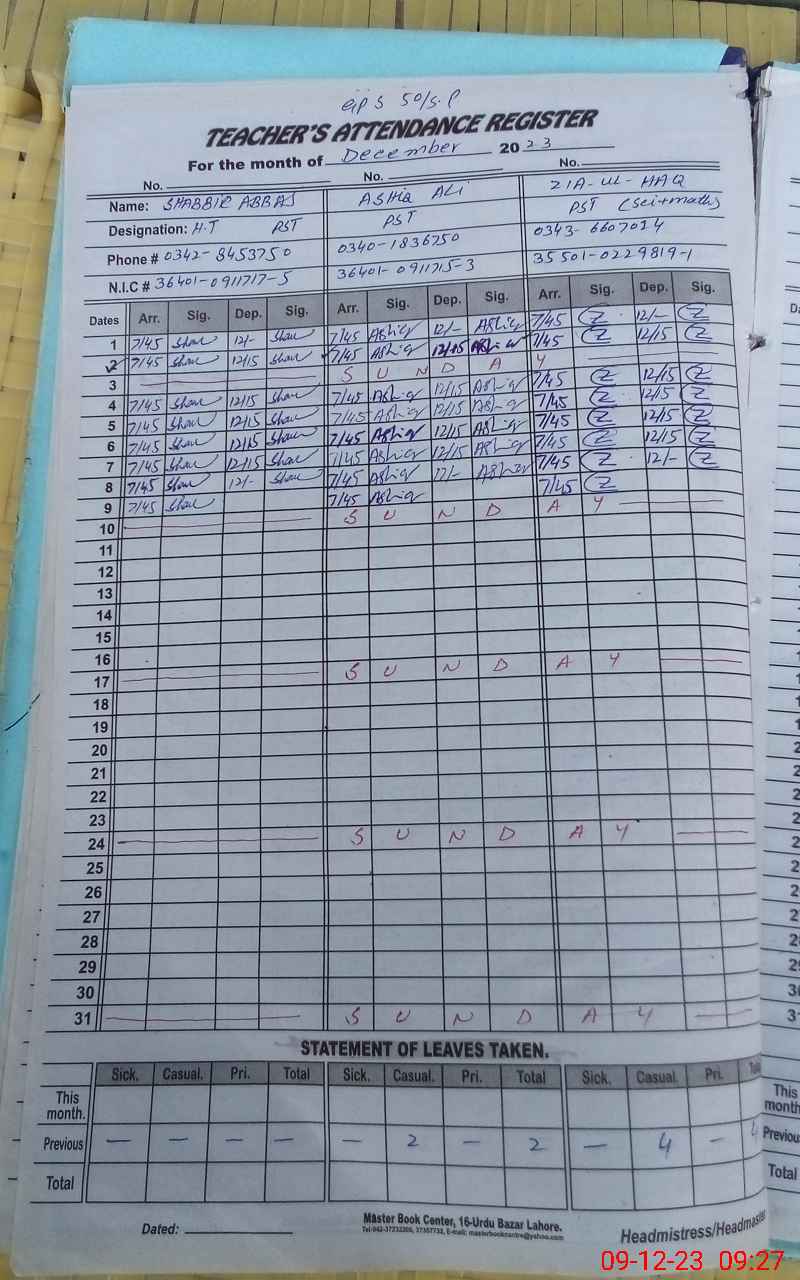 GPS 50/S.P
TEACHER'S ATTENDANCE REGISTER
For the month of December 2023
No. No. No.
Name: SHABBIR ABBAS ASHIQ ALI ZIA-UL-HAQ
Designation: H.T PST PST PST (Sci+math)
Phone # 0342-8453750 0340-1836750 0343-6607014
N.I.C # 36401-0911717-5 36401-0911715-3 35501-0229819-1
Dates Arr. Sig. Dep. Sig. Arr. Sig. Dep. Sig. Arr. Sig. Dep. Sig.
1 7/45 12/- 7/45 Ashiq 12/- Ashiq 7/45 Z 12/- Z
2 7/45 12/15 7/45 Ashiq 12/15 Ashiq 7/45 Z 12/15 Z
3 S U N D A Y
4 7/45 12/15 7/45 Ashiq 12/15 Ashiq 7/45 Z 12/15 Z
5 7/45 12/15 7/45 Ashiq 12/15 Ashiq 7/45 Z 12/15 Z
6 7/45 12/15 7/45 Ashiq 12/15 Ashiq 7/45 Z 12/15 Z
7 7/45 12/15 7/45 Ashiq 12/15 Ashiq 7/45 Z 12/15 Z
8 7/45 12/- 7/45 Ashiq 12/- Ashiq 7/45 Z 12/- Z
9 7/45 7/45 Ashiq 7/45 Z
10 S U N D A Y
11
12
13
14
15
16
17 S U N D A Y
18
19
20
21
22
23
24 S U N D A Y
25
26
27
28
29
30
31 S U N D A Y
STATEMENT OF LEAVES TAKEN.
Sick. Casual. Pri. Total Sick. Casual. Pri. Total Sick. Casual. Pri.
This month.
Previous — — — — — 2 — 2 — 4 — 4
Total
Dated:
Master Book Center, 16-Urdu Bazar Lahore.
Headmistress/Headmaster
This month
Previous
Total
09-12-23 09:27